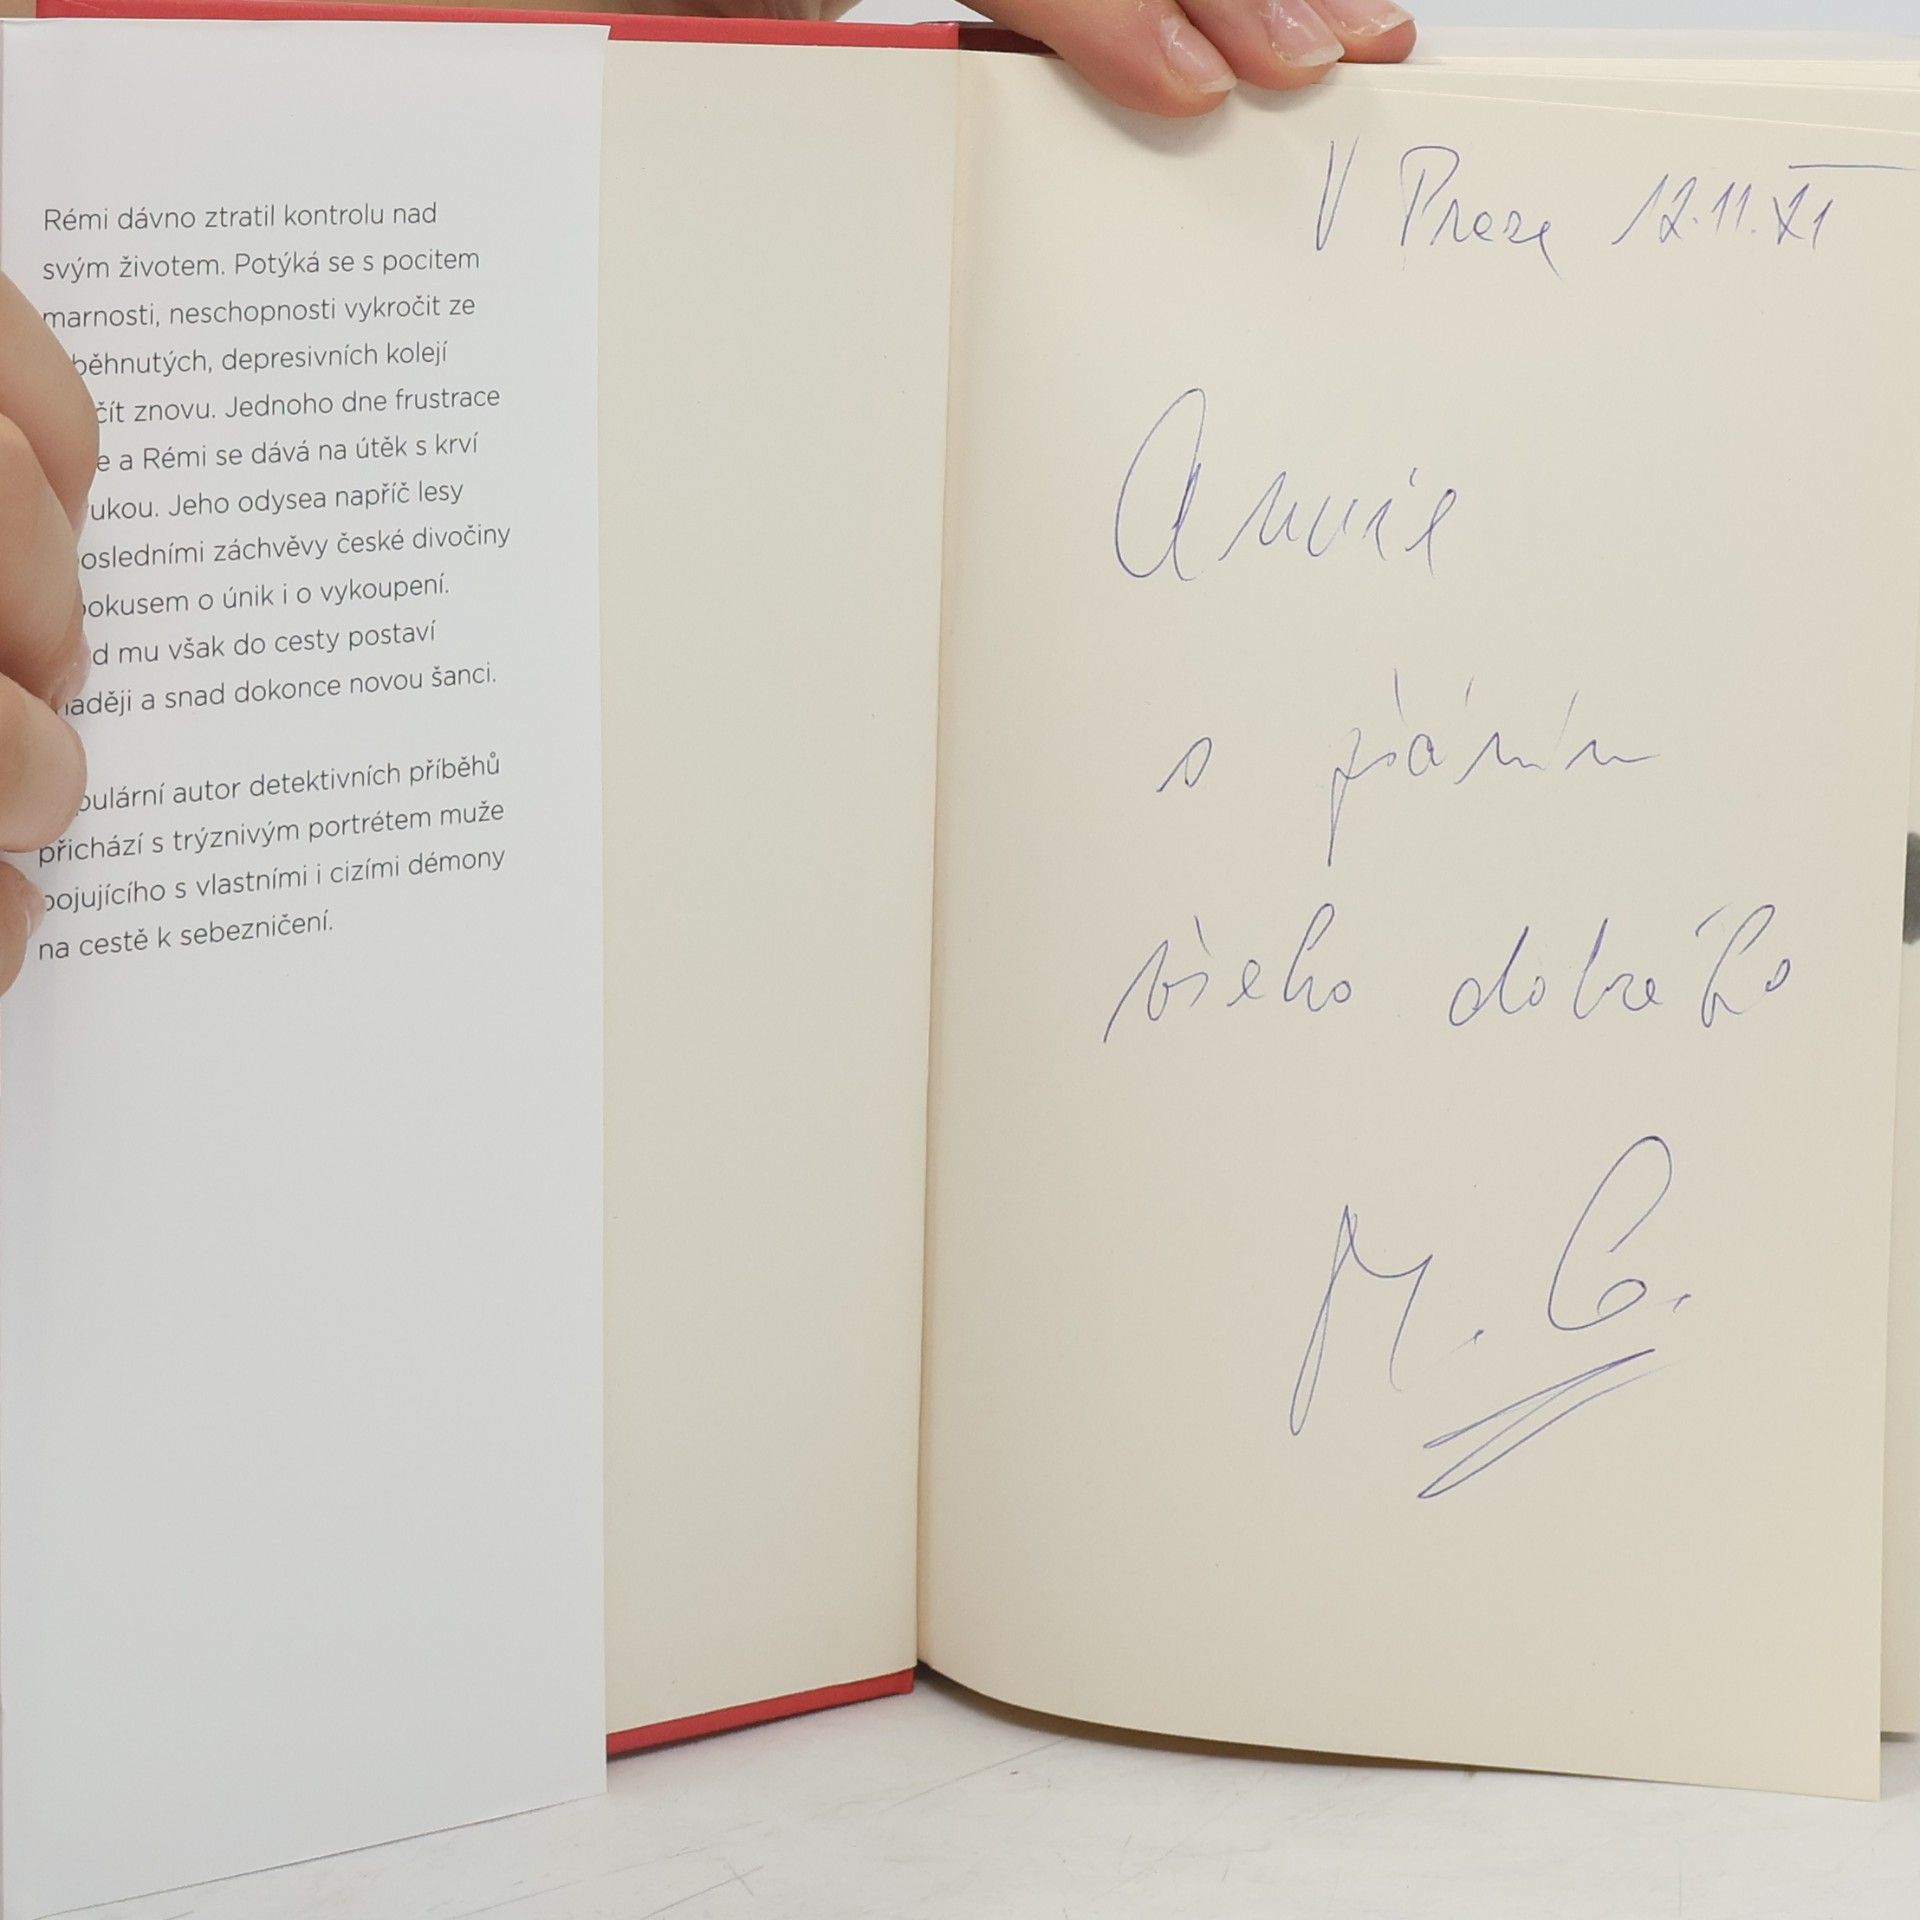 Rémi dávno ztratil kontrolu nad
svým životem. Potýká se s pocitem
marnosti, neschopnosti vykročit ze
běhnutých, depresivních kolejí
čít znovu. Jednoho dne frustrace
e a Rémi se dává na útěk s krví
ukou. Jeho odysea napříč lesy
osledními záchvěvy české divočiny
pokusem o únik i o vykoupení.
d mu však do cesty postaví
naději a snad dokonce novou šanci.
pulární autor detektivních příběhů
přichází s trýznivým portrétem muže
bojujícího s vlastními i cizími démony
na cestě k sebezničení.
V Praze 12.11.
s přáním
všeho dobrého
M. C.